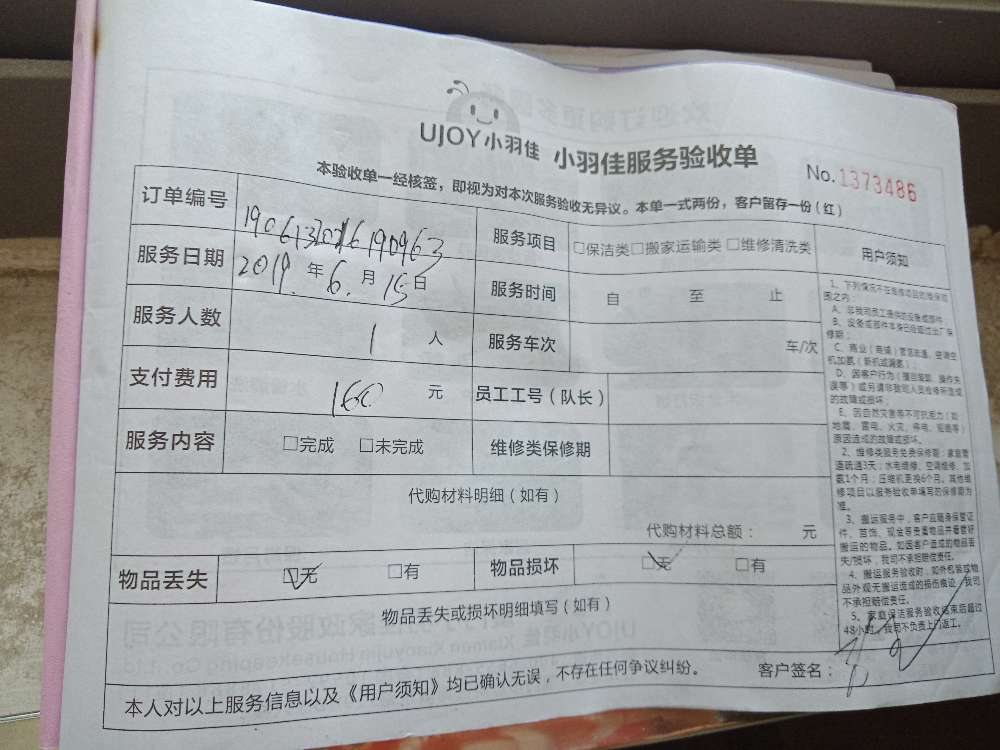 UJOY小羽佳 小羽佳服务验收单
No.1373486
本验收单一经核签，即视为对本次服务验收无异议。本单一式两份，客户留存一份（红）
订单编号
服务项目 □保洁类□搬家运输类 □维修清洗类
用户须知
服务日期 2019年6月15日
服务时间 自 至 止
服务人数 1 人
服务车次 车/次
支付费用 160 元
员工工号（队长）
服务内容 □完成 □未完成
维修类保修期
代购材料明细（如有）
代购材料总额： 元
物品丢失 □无 □有
物品损坏 □无 □有
物品丢失或损坏明细填写（如有）
本人对以上服务信息以及《用户须知》均已确认无误，不存在任何争议纠纷。
客户签名：
1、下列情况不在维修项目的维保范
围之内：
A、非我司员工提供的设备或部件；
B、设备或部件本身已经超过出厂保
修期；
D、因客户行为（擅自装卸、操作失
误等）或另请非我司人员检修所造成
的故障或损坏；
E、因自然灾害等不可抗拒力（如
地震、雷电、火灾、停电、短路等）
原因造成的故障或损坏。
2、维修类服务免费保修期：家庭管
道疏通3天；水电维修、空调维修、加
氨1个月；压缩机更换6个月。其他维
修项目以服务验收单填写的保修期为
准。
3、搬运服务中，客户应随身保管证
件、首饰、现金等贵重物品并看管好
搬运的物品。如因客户造成的物品丢
失/损坏，我司不承担赔偿责任。
4、搬运服务验收时，如外包装或物
品外观无搬运造成的损伤痕迹，我司
不承担赔偿责任。
5、家庭保洁服务验收结束后超过
48小时，我司不负责上门返工。